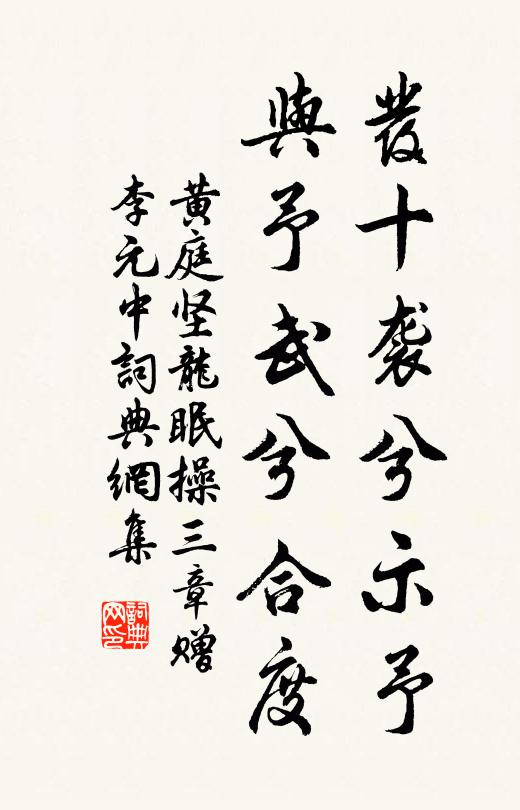 發十袭兮示予
與予武兮合度
黄庭坚龍眠操三章赠
李元中詞典網集
詞典网印